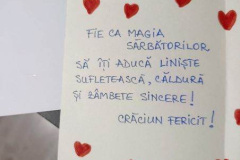 FIE CA MAGIA
SĂRBĂTORILOR
SĂ ÎȚI ADUCĂ LINIȘTE
SUFLETEASCĂ, CĂLDURĂ
ȘI ZÂMBETE SINCERE!
CRĂCIUN FERICIT!